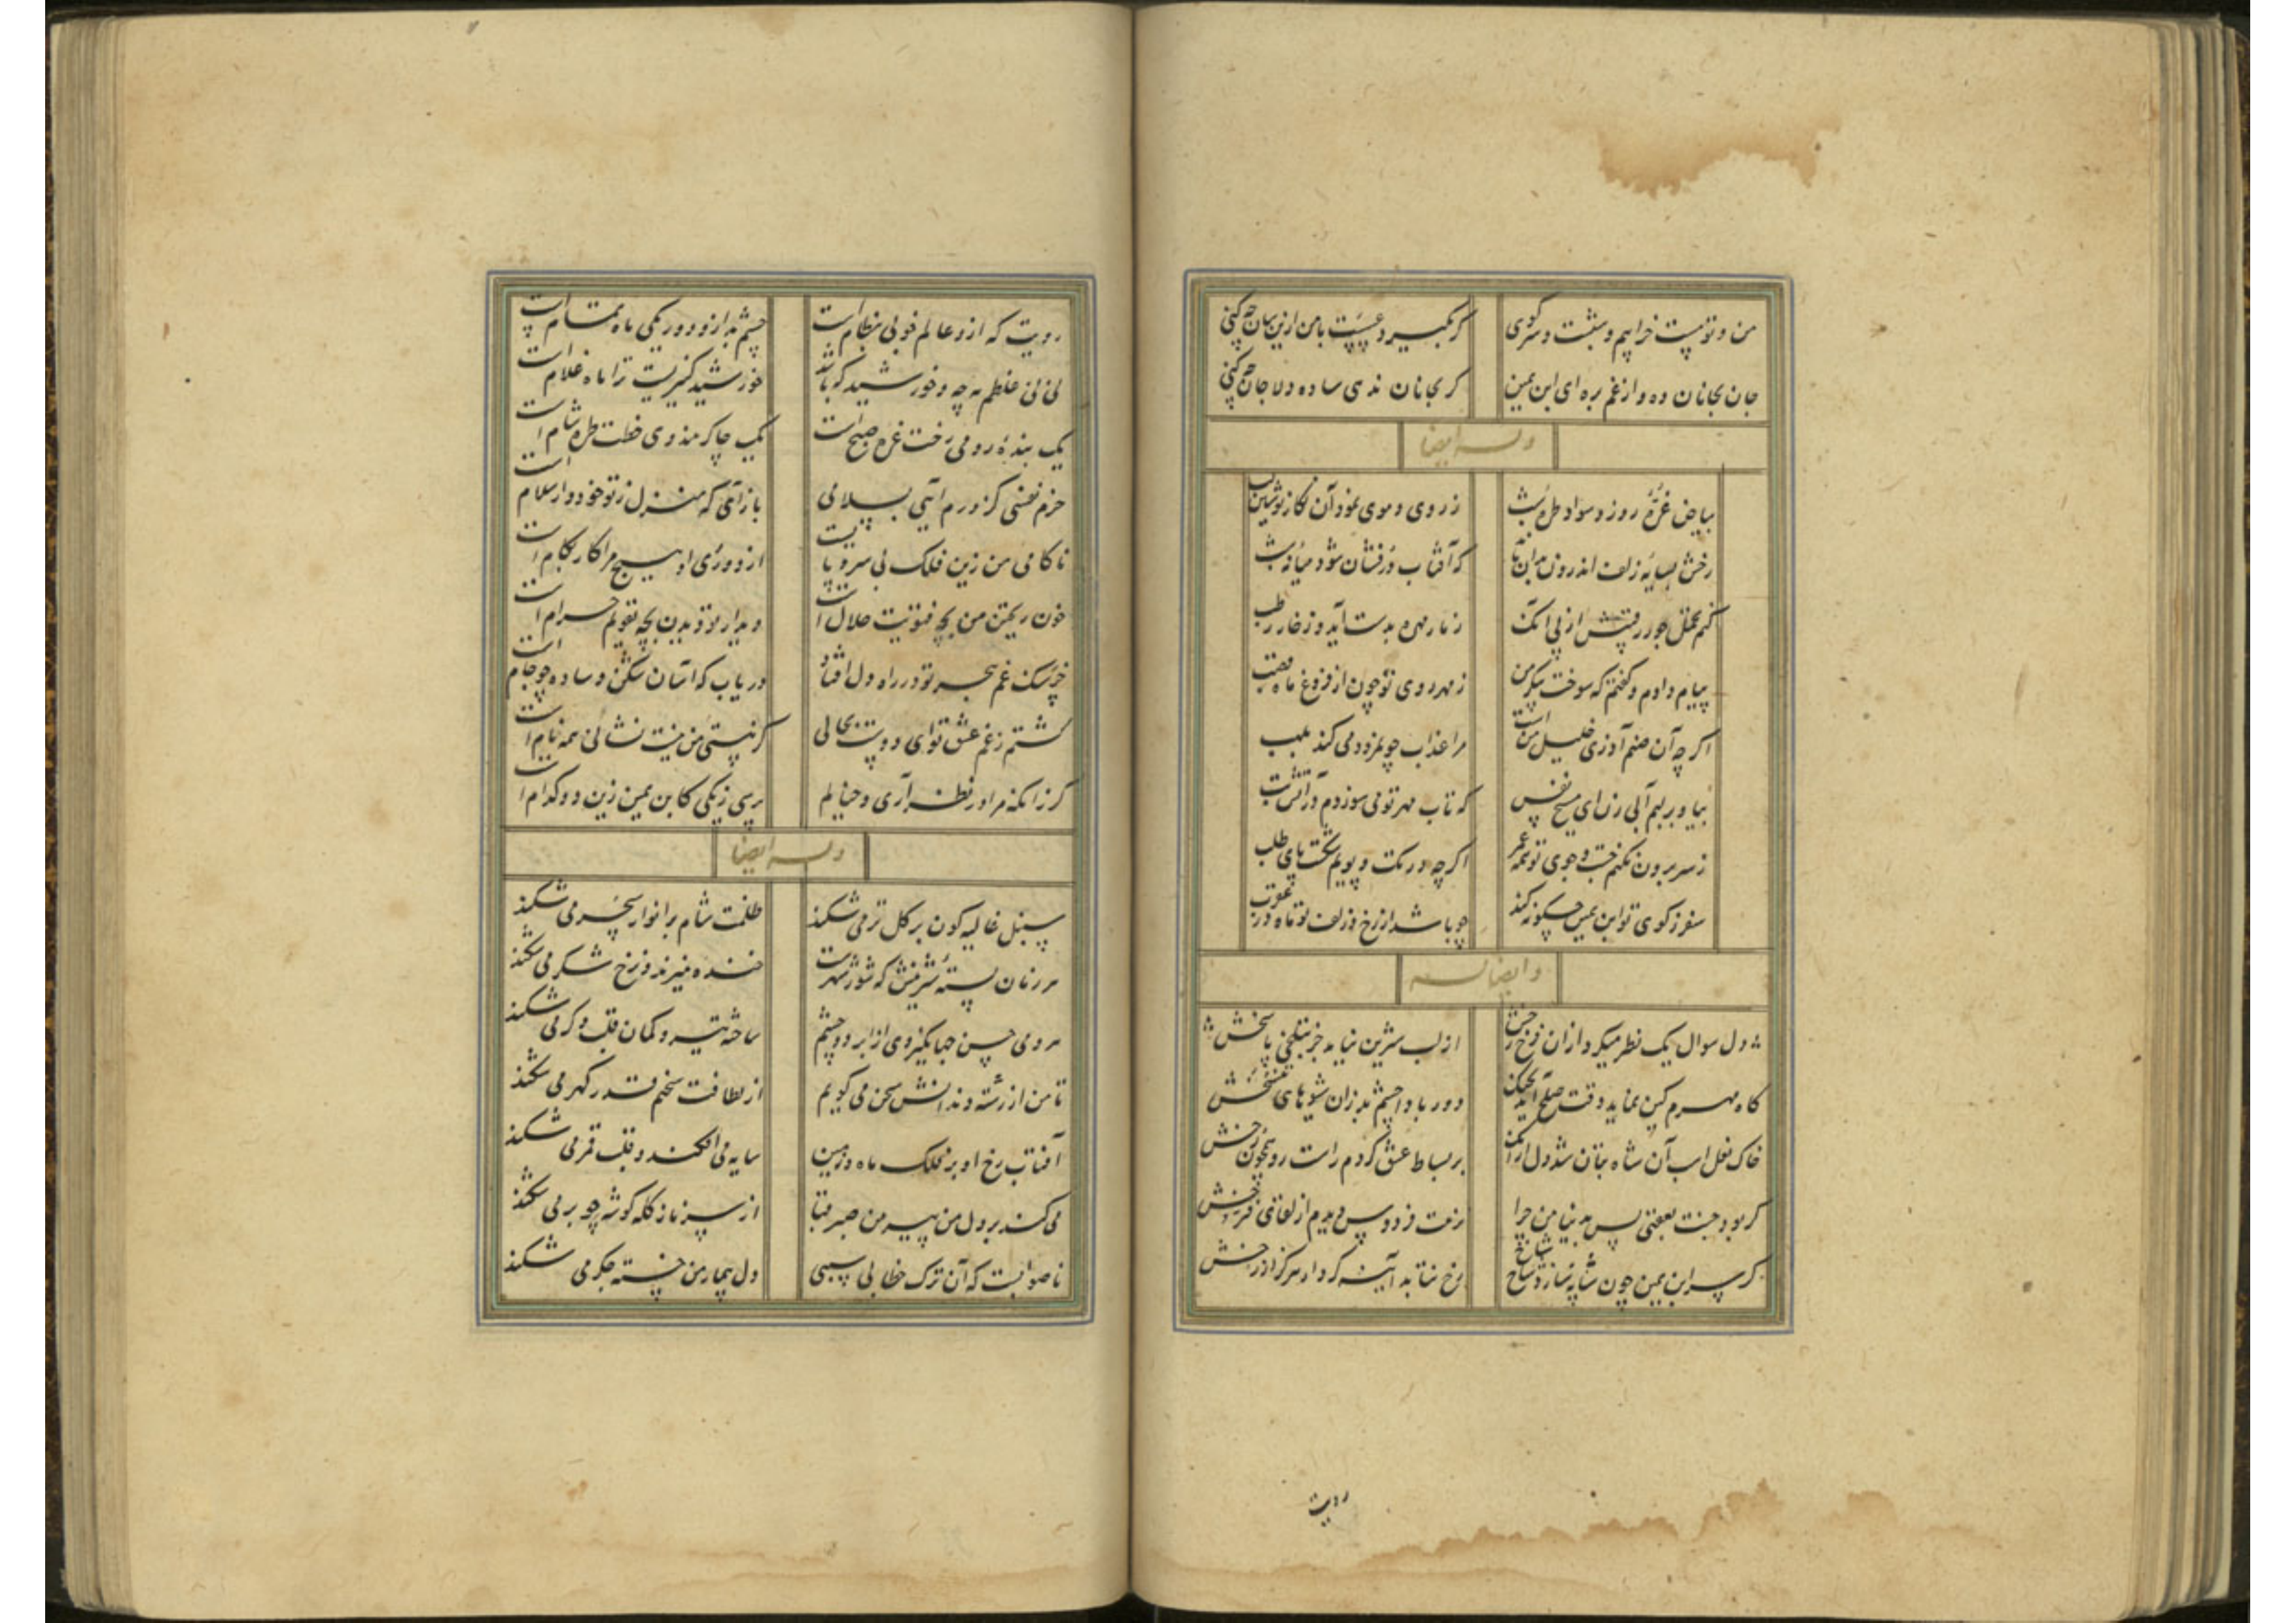 من و تو مست خرابیم و بتست و سر کوی
کر بکیرد عسست بامن ازین سان چه کنی
جان بجانان ده و از غم بره ای ابن یمین
کر بجانان ندهی ساده دلا جان چه کنی
وله ایضا
بیاض غرّهٔ روز و سواد طرهٔ شب
ز روی و موی نمود آن نکار نوشین لب
رخش بسایهٔ زلف اندرون بدان ماند
که آفتاب درفشان شود میانهٔ شب
کنم تحمل جور رقیبش از پی آنک
ز مار مهره بدست آید و ز خار رطب
پیام دادم و کفتم که سوخت پیکر من
ز مهر روی تو چون از فروغ ماه قصب
اکر چه آن صنم آوزی خلیل منست
مرا عذاب چو نمرود می کند بلهب
بیا و بر لبم آبی زن ای مسیح نفس
که تاب مهر تو می سوزدم در آتش تب
ز سر برون نکنم جست و جوی تو همه عمر
اکر چه در تک و پویم شکست پای طلب
سفر ز کوی تو ابن یمین چکونه کند
چو باشد از رخ و زلف تو ماه در عقرب
و ایضا له
دل سوال یک نظر میکرد از آن فرخ رخش
از لب شیرین نیاید جز بتلخی پاسخش
کاه مهرم کین نماید وقت صلح آید بجنک
دور بادا چشم بد زان شیوهای
خاک نعل اسب آن شاه بتان شد دل از آنک
بر بساط عشق کردم راست رو همچون رخش
کر بود جنت بعقبی پس بدنیا من چرا
نزهت فردوس دیدم از لقای فرخش
کر سر ابن یمین چون شانه سازد شاخ شاخ
رخ نتابد آینه کردار هرکز از رخش
رویت
رویت که ازو عالم خوبی بنظام است
چشم بد ازو دور یکی ماه تمام است
نی نی غلطم مه چه و خورشید که باشد
خورشید کنیزیست ترا ماه غلام است
یک بندهٔ رومی رخت غره صبح است
یک چاکر هندوی خطت طره شام است
خرم نفسی کز درم آیی بسلامی
باز آی که منزل ز تو خود دار سلام است
ناکامی من زین فلک بی سر و پا نیست
از دوری او هیچ مرا کار بکام است
خون ریختن من بچه فتویت حلال است
دیدار تو دیدن بچه تقویم حرام است
خوش سنک غم هجر تو در راه دل افتاد
دریاب که آسان شکن و ساده چو جام است
کشتم ز غم عشق تو ای دوست بحالی
کز نیستی من نیست نشانی همه نام است
کر زانکه مرا در نظر آری و خیالم
پرسی ز یکی کابن یمین زین دو کدام است
وله ایضا
سنبل غالیه کون بر کل تر می شکند
ظلمت شام بر انوار سحر می شکند
هر زمان پستهٔ شیرینش که شور شهرست
خنده میزند و نرخ شکر می شکند
روی حسن جهانکیر وی از ابرو و چشم
ساخته تیر و کمان قلب و کمر می شکند
تا من از رشتهٔ دندانش سخن می کویم
از لطافت سخنم قدر کهر می شکند
آفتاب رخ او بر فلک ماه و زمین
سایه می افکند و قلب قمر می شکند
می کند بر دل من پیرهن صبر قبا
از سر ناز کله کوشه چو بر می شکند
ناصوابست که آن ترک خطا بی سببی
دل بیمار من خسته جکر می شکند